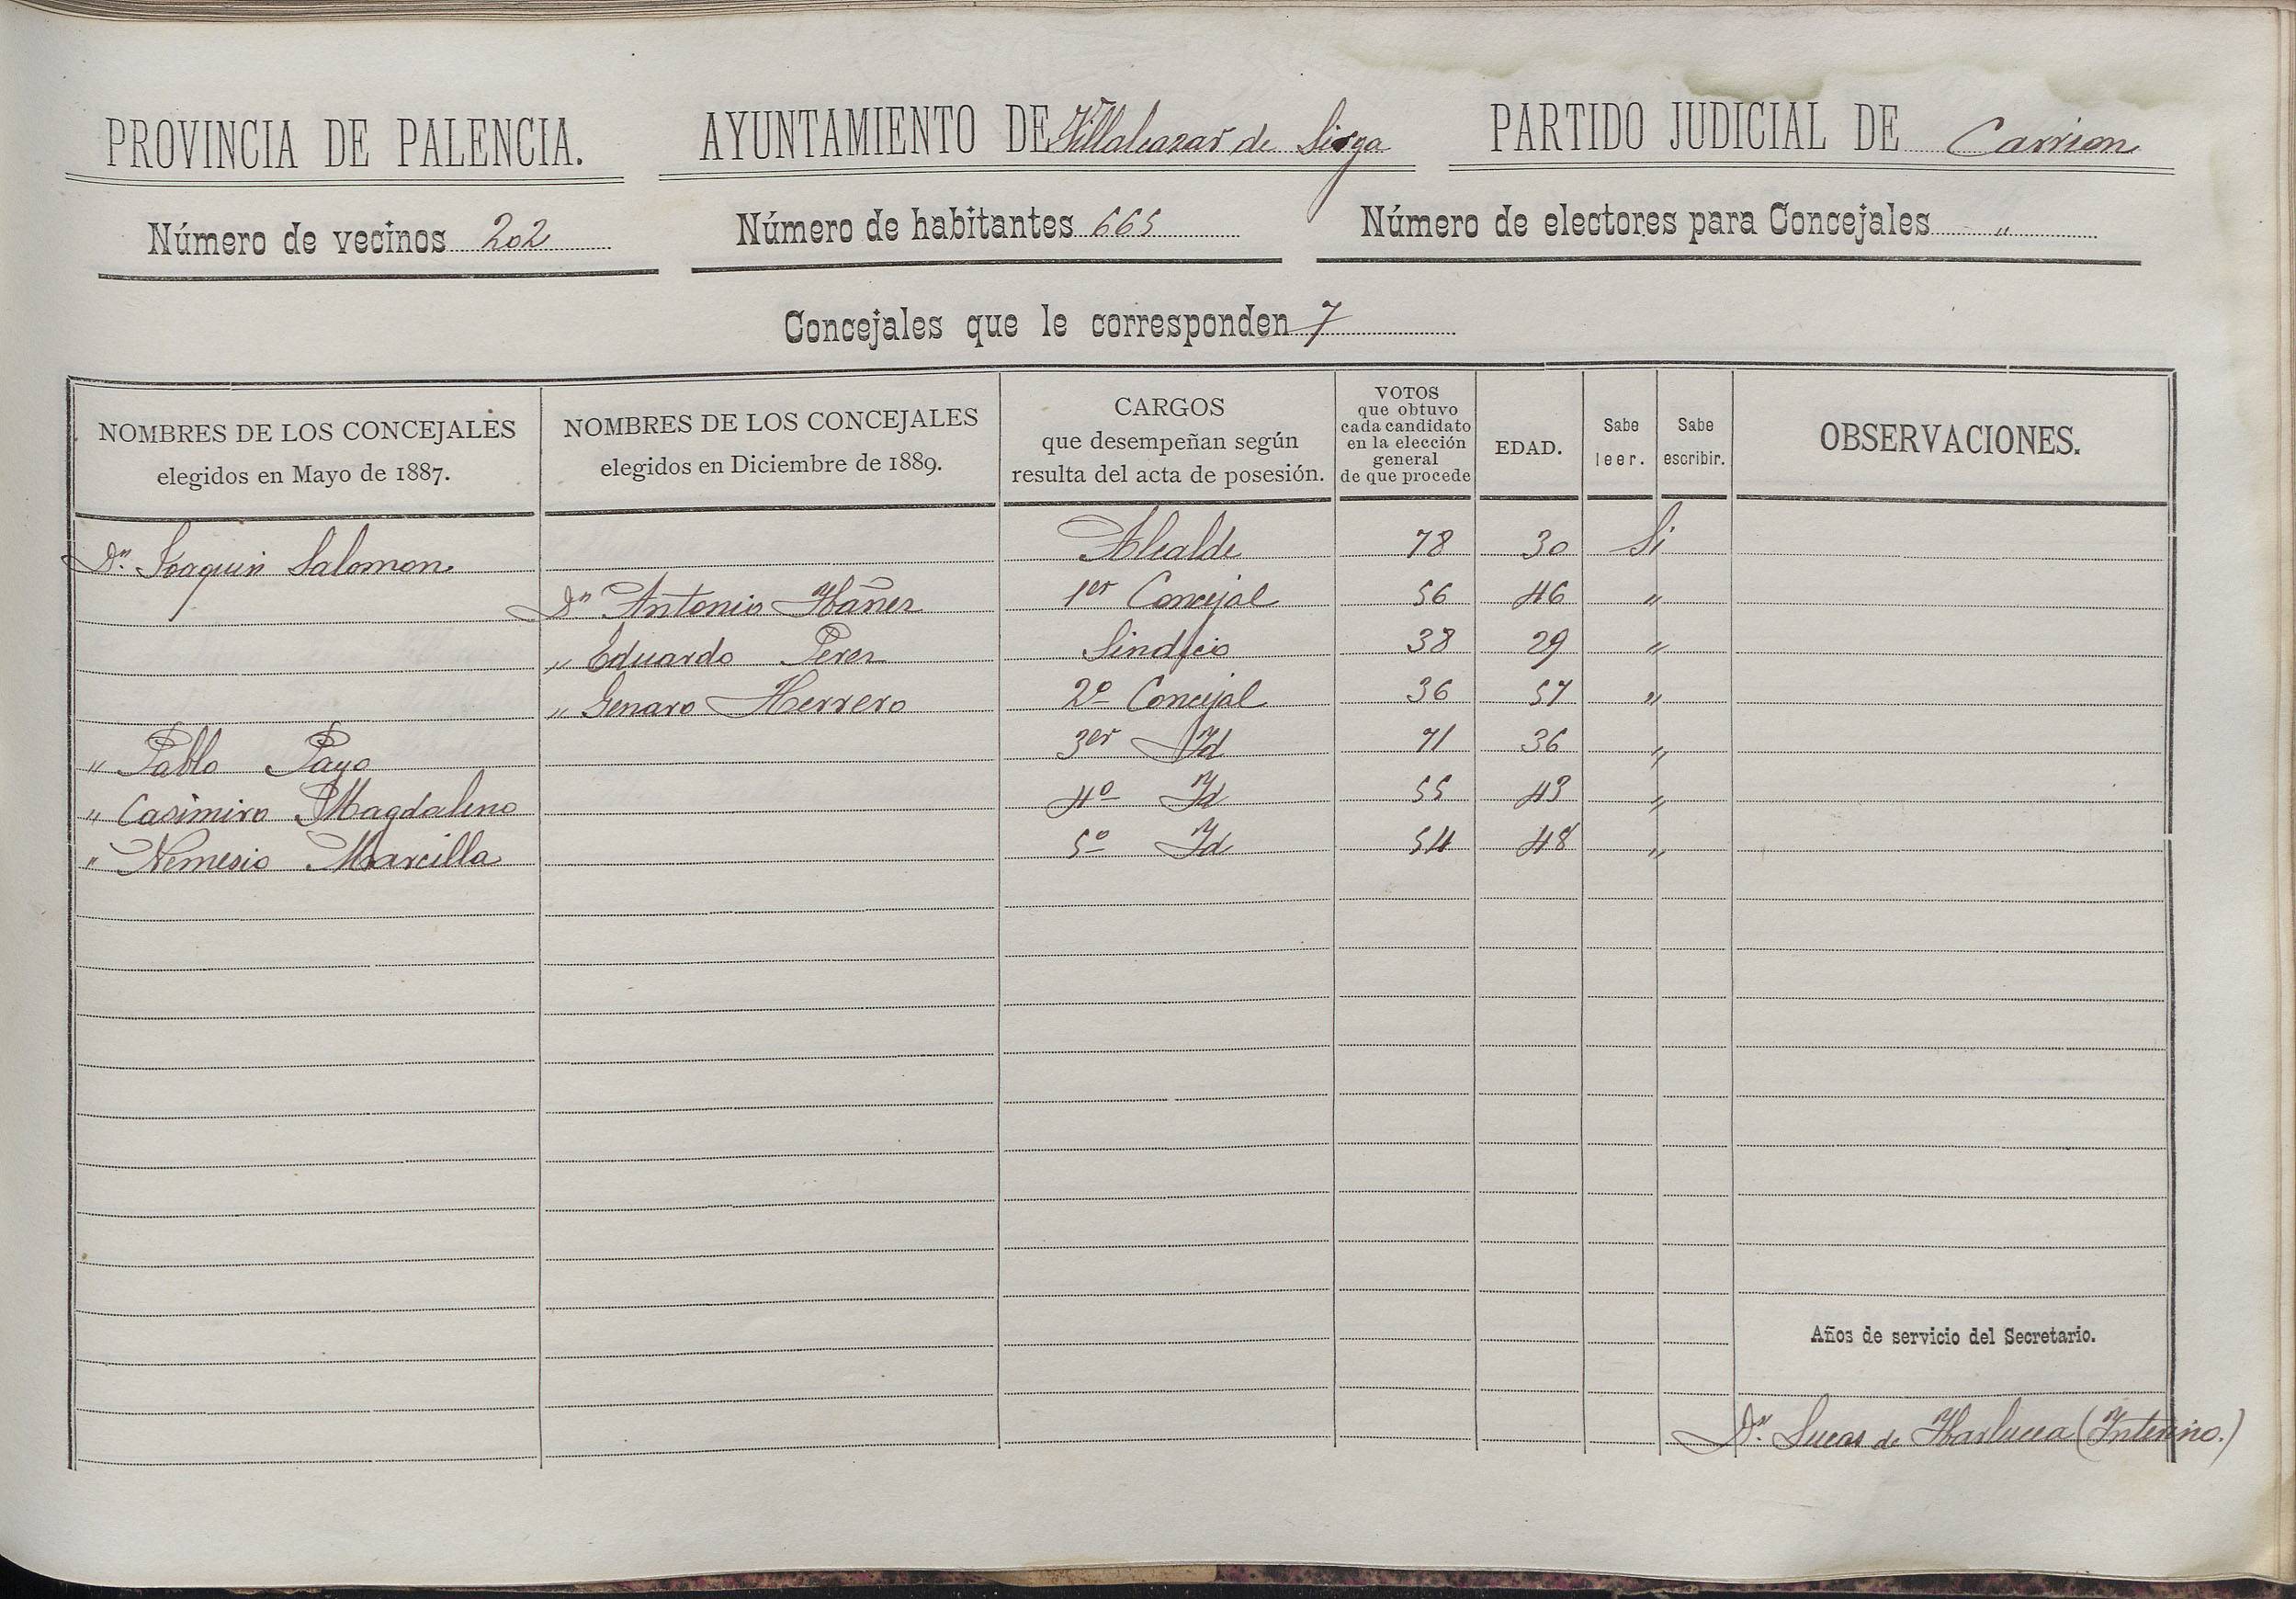 PROVINCIA DE PALENCIA. AYUNTAMIENTO DE Villalcazar de Sirga PARTIDO JUDICIAL DE Carrion
Número de vecinos 202 Número de habitantes 665 Número de electores para Concejales "
Concejales que le corresponden 7
NOMBRES DE LOS CONCEJALES elegidos en Mayo de 1887. NOMBRES DE LOS CONCEJALES elegidos en Diciembre de 1889. CARGOS que desempeñan según resulta del acta de posesión. VOTOS que obtuvo cada candidato en la elección general de que procede EDAD. Sabe leer. Sabe escribir. OBSERVACIONES.
Dn. Joaquin Salomon Alcalde 78 30 Si
Dn Antonio Ibañez 1er Concejal 56 46 "
" Eduardo Perez Sindico 38 29 "
" Genaro Herrero 2o Concejal 36 57 "
" Pablo Payo 3er Id 71 36 "
" Casimiro Magdaleno 4o Id 55 43 "
" Nemesio Marcilla 5o Id 54 48 "
Años de servicio del Secretario.
Dn. Lucas de (Interino.)